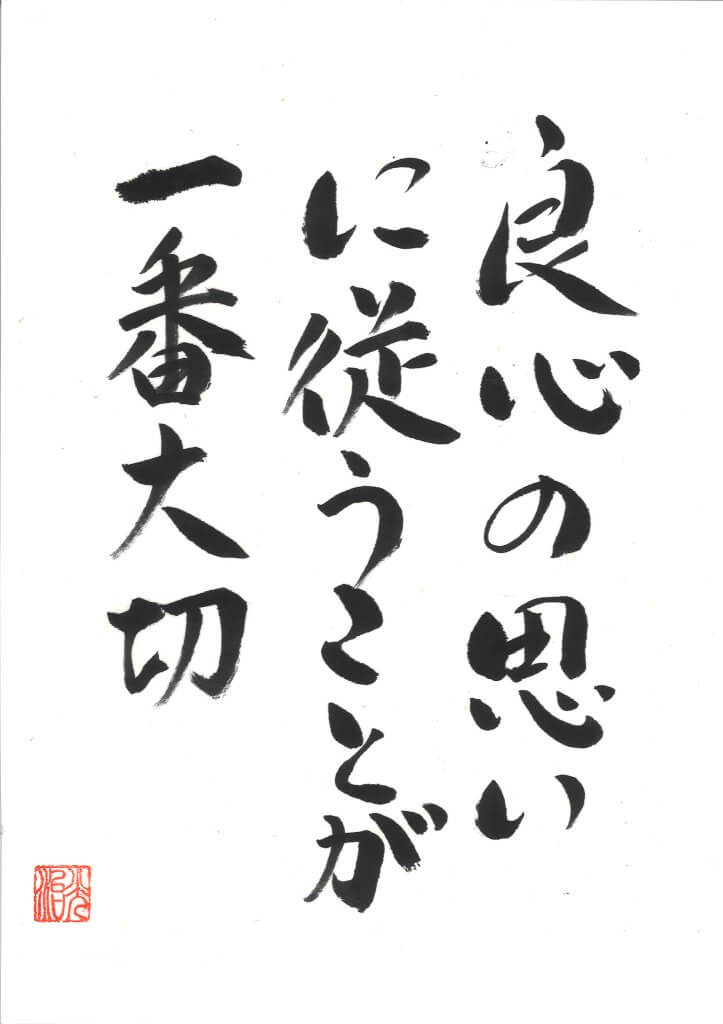 良心の思い
に従うことが
一番大切